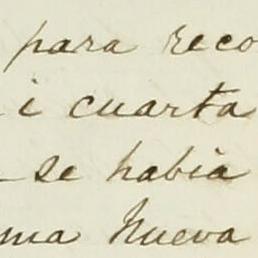 para reco
i cuarta
se habia
ma Nueva